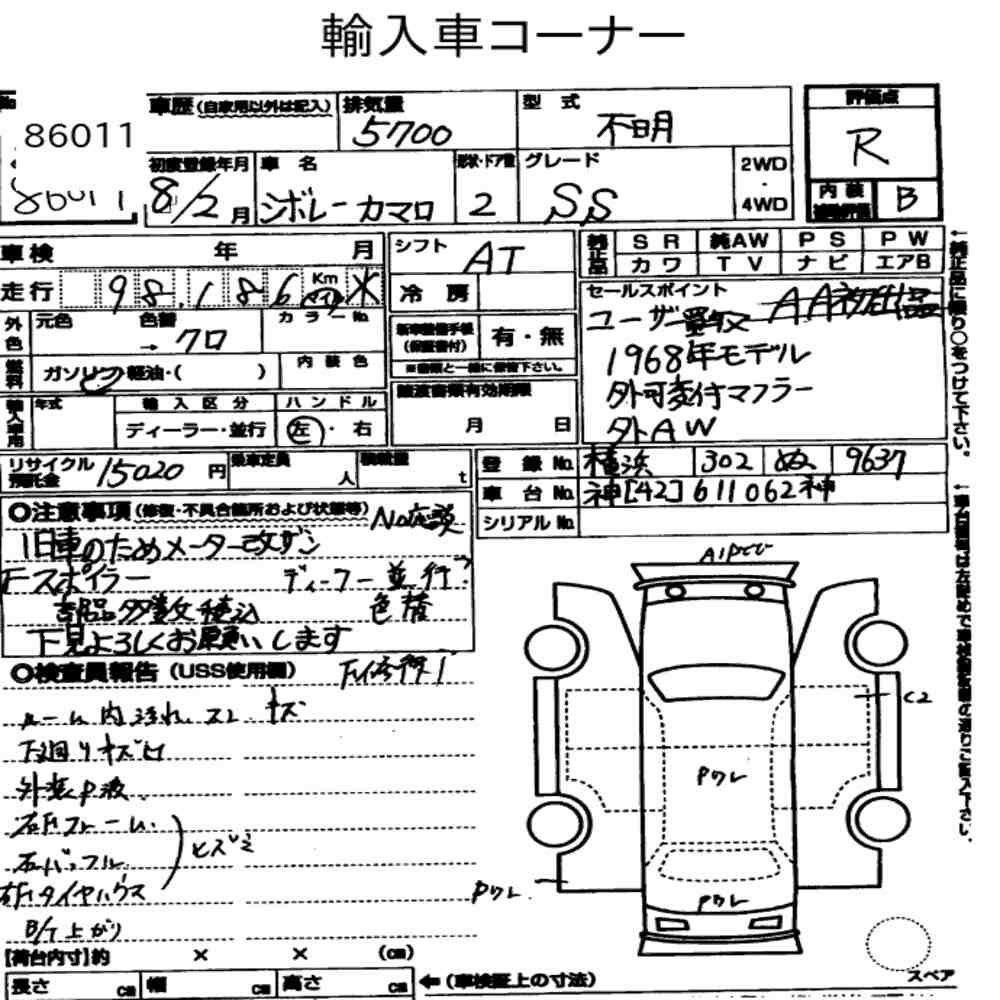 輸入車コーナー
No.
86011
86011
車歴(自家用以外は記入)
排気量
5700
型式
不明
評価点
R
初度登録年月
8/2月
車名
シボレー カマロ
形状・ドア数
2
グレード
SS
2WD
・
4WD
内装
補助評価
B
車検 年 月
シフト
AT
純正品
SR 純AW PS PW
カワ TV ナビ エアB
走行 98,186 Km マイル
冷房
セールスポイント
ユーザー買取 AA初出品
1968年モデル
外可変付マフラー
外AW
外色
元色 色替
→クロ
カラーNo.
新車整備手帳
(保証書付)
有・無
※書類と一緒に保管下さい。
燃料
ガソリン・軽油・( )
内装色
譲渡書類有効期限
月 日
輸入車用
年式
輸入区分
ディーラー・並行
ハンドル
左・右
リサイクル
預託金
15020円
乗車定員
人
積載量
t
登録No. 横浜 302 ぬ 9637
車台No. 神[42]611062神
シリアルNo.
←純正品に限り○をつけて下さい。
○注意事項(修復・不具合箇所および状態等)
旧車のためメーター改ザン
F-スポイラー ディーラー並行?
部品多数積込 色替
下見よろしくお願いします
○検査員報告(USS使用欄)
ルーム内汚れ、スレ、キズ
下廻りサビ凹
外装P波
右Fフレーム
右バッフル
右Fタイヤハウス
ヒズミ
B/T上がり
A1Pとび
C2
Pワレ
Pワレ
Pワレ
スペア
【荷台内寸】約 × × (cm)
長さ cm 幅 cm 高さ cm
←(車検証上の寸法)